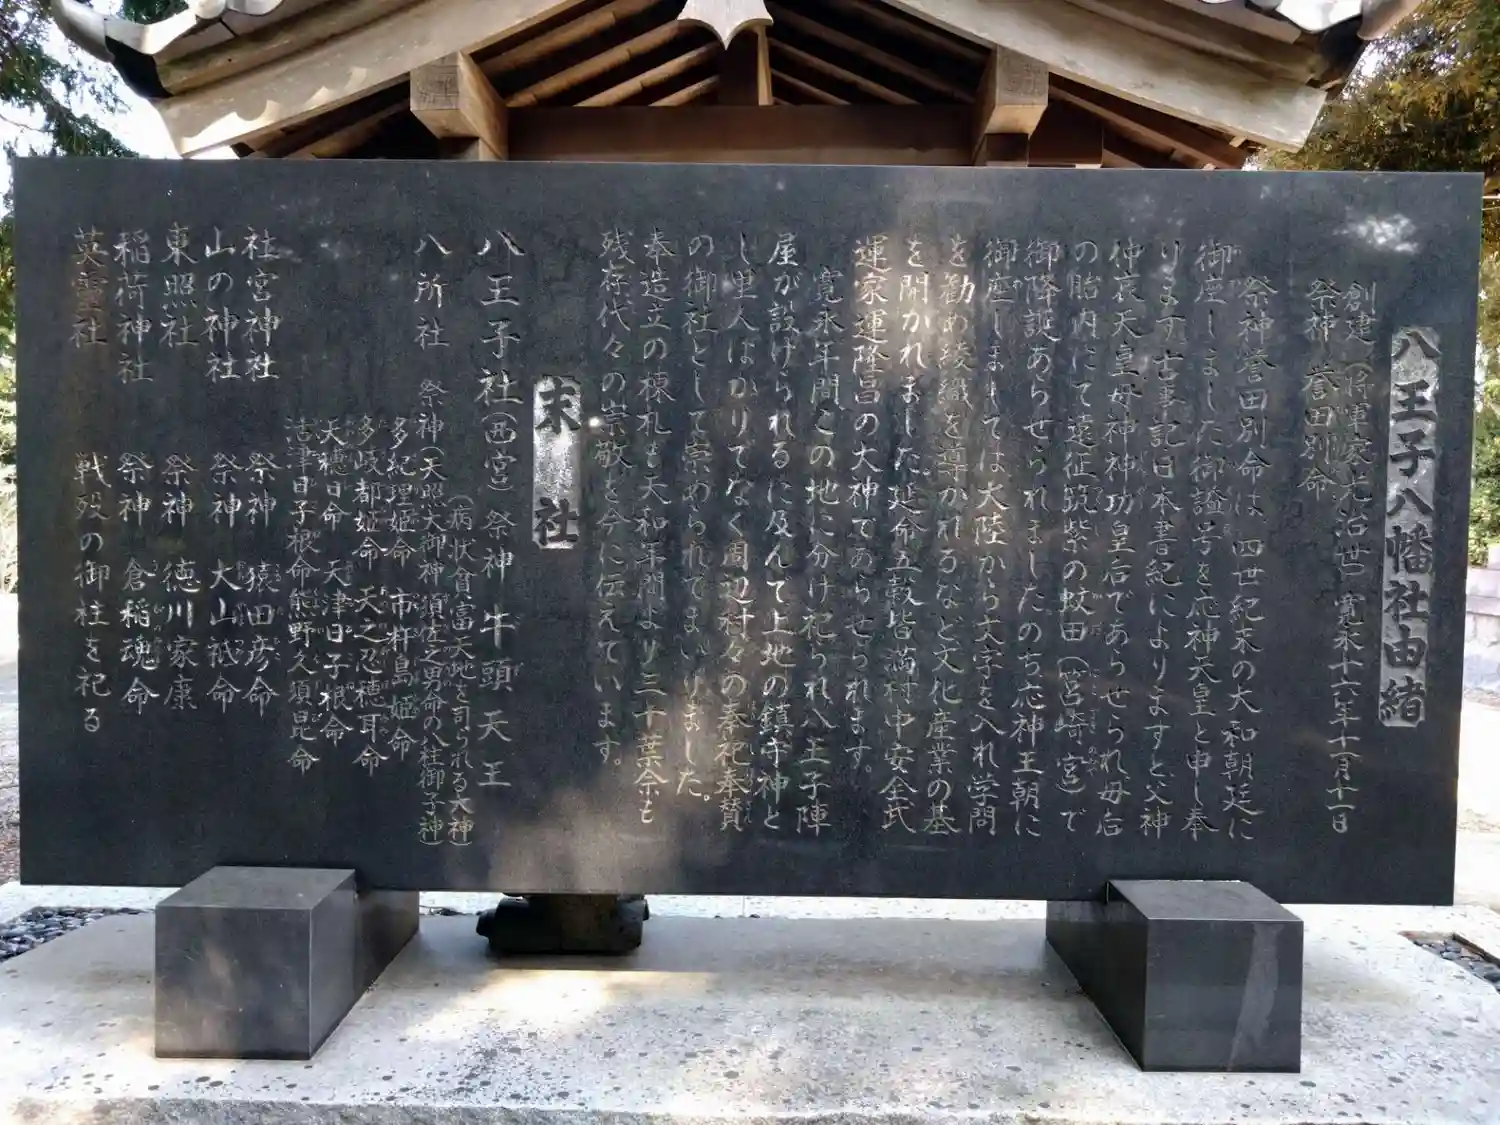 八王子八幡社由緒
創建 (将軍家光治世) 寛永十六年十一月十一日
祭神 誉田別命
祭神誉田別命は、四世紀末の大和朝廷に
御座しました御諡号を応神天皇と申し奉
ります 古事記日本書紀によりますと、父神
仲哀天皇母神神功皇后であらせられ母后
の胎内にて遠征筑紫の蚊田(筥崎宮)で
御降誕あらせられましたのち応神王朝に
御座しましては大陸から文字を入れ学問
を勧め綾織を導かれるなど文化産業の基
を開かれました延命五穀皆満村中安全武
運家運隆昌の大神であらせられます。
寛永年間この地に分け祀られ八王子陣
屋が設けられるに及んで上地の鎮守神と
し里人ばかりでなく周辺村々の奉祀奉賛
の御社として崇められてまいりました。
奉造立の棟札も天和年間より三十葉余も
残存代々の崇敬を今に伝えています。
末社
八王子社(西宮) 祭神 牛頭天王
(病状貧富天地を司られる大神)
八所社 祭神(天照大御神 須佐之男命の八柱御子神)
多紀理姫命 市杵島姫命
多岐都姫命 天之忍穂耳命
天穂日命 天津日子根命
活津日子根命 熊野久須昆命
社宮神社 祭神 猿田彦命
山の神社 祭神 大山祇命
東照社 祭神 徳川家康
稲荷神社 祭神 倉稲魂命
英霊社 戦歿の御柱を祀る